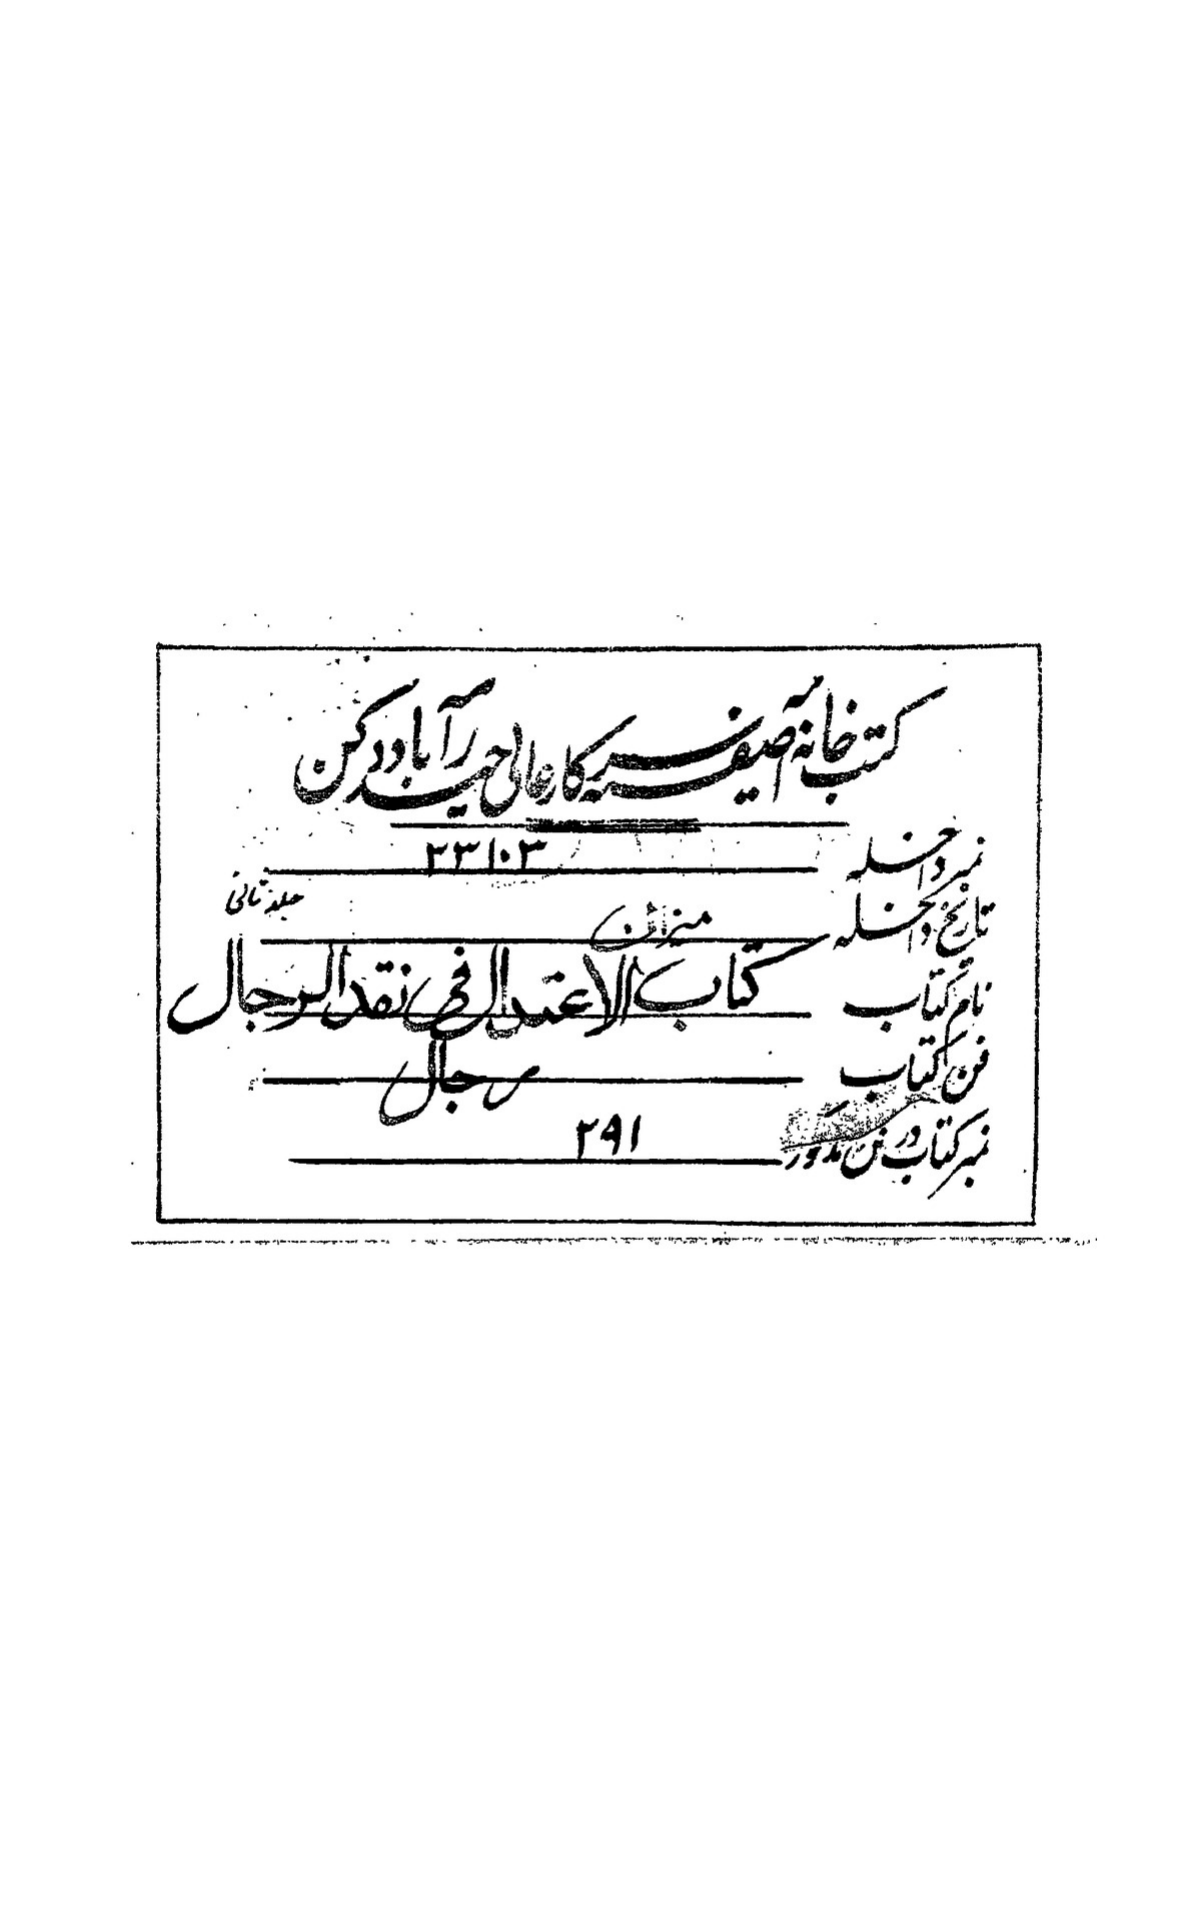 کتب خانہ آصفیہ سرکار عالی حیدرآباد دکن
نمبر داخلہ ۲۳۱۰۳
تاریخ داخلہ
جلد ثانی
میزان
نام کتاب کتاب الاعتدال فی نقد الرجال
فن کتاب رجال
نمبر کتاب در فن مذکور ۲۹۱